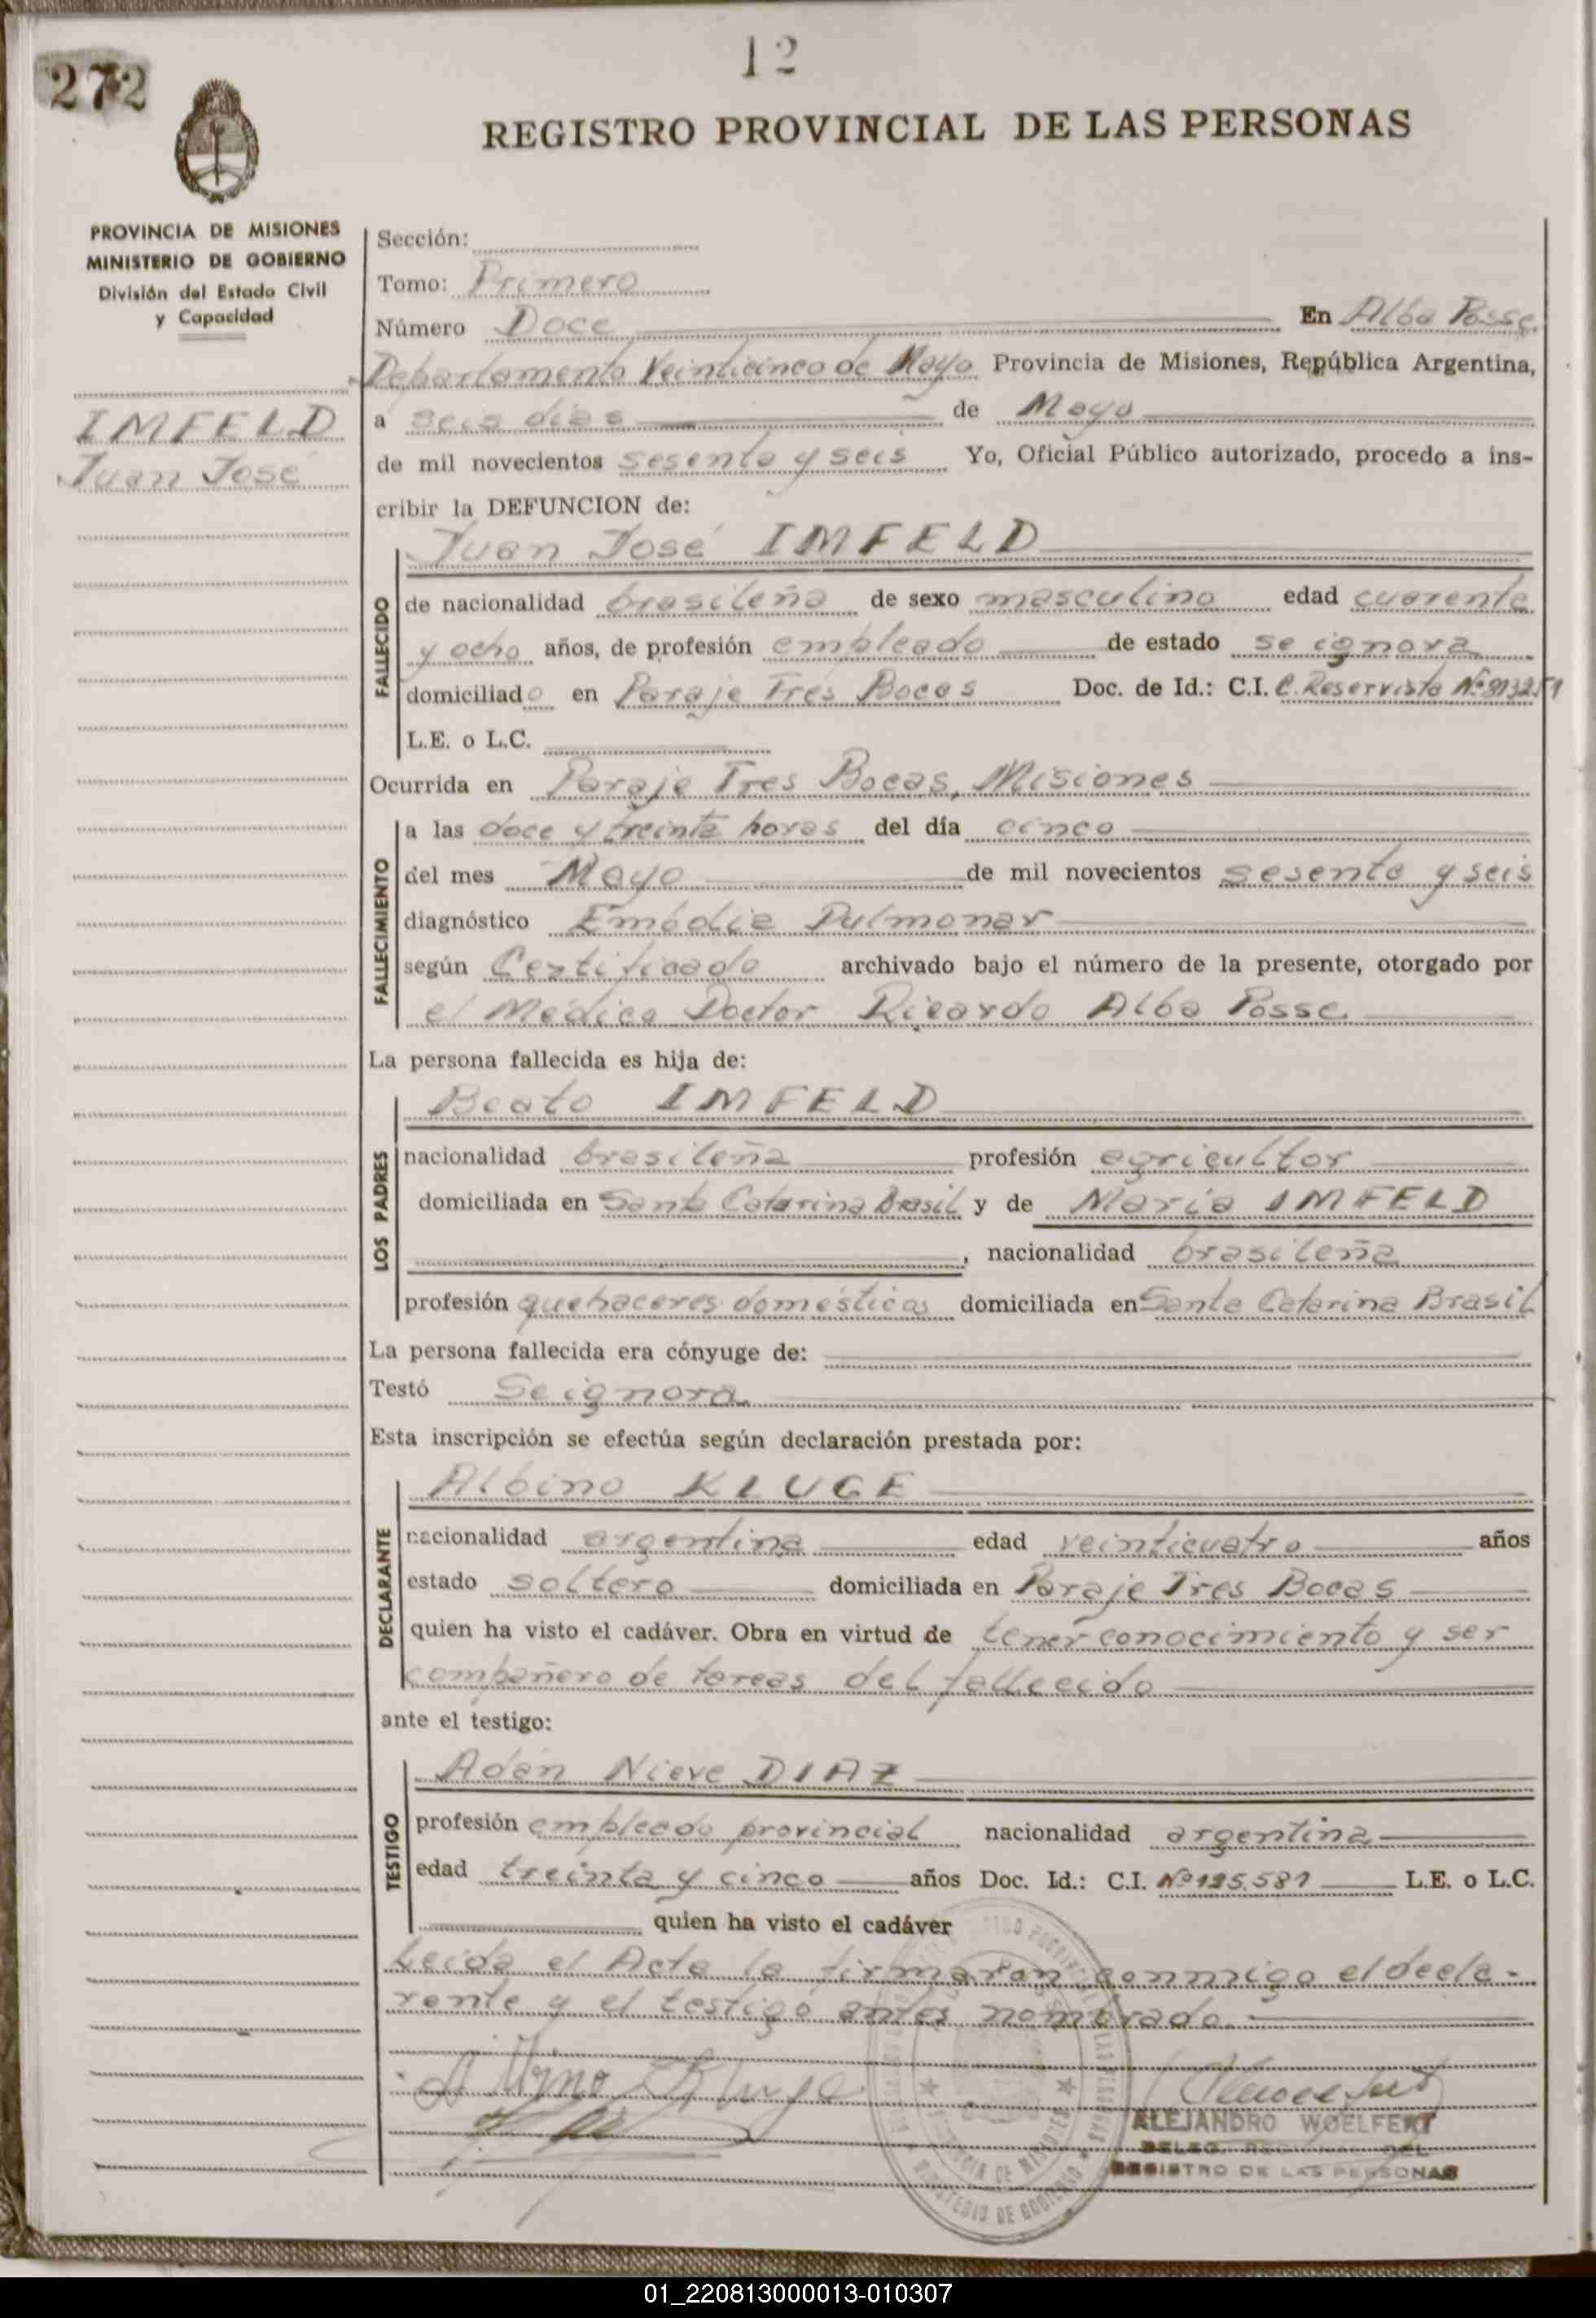 272
12
REGISTRO PROVINCIAL DE LAS PERSONAS
PROVINCIA DE MISIONES
MINISTERIO DE GOBIERNO
División del Estado Civil
y Capacidad
IMFELD
Juan José
Sección:
Tomo: Primero
Número Doce En Alba Posse
Departamento Veinticinco de Mayo Provincia de Misiones, República Argentina,
a seis días de Mayo
de mil novecientos sesenta y seis Yo, Oficial Público autorizado, procedo a ins-
cribir la DEFUNCION de:
Juan José IMFELD
FALLECIDO
de nacionalidad brasileña de sexo masculino edad cuarenta
y ocho años, de profesión empleado de estado se ignora
domiciliado en Paraje Tres Bocas Doc. de Id.: C.I. C. Reservista Nº 813251
L.E. o L.C.
Ocurrida en Paraje Tres Bocas, Misiones
FALLECIMIENTO
a las doce y treinta horas del día cinco
del mes Mayo de mil novecientos sesenta y seis
diagnóstico Embólia Pulmonar
según Certificado archivado bajo el número de la presente, otorgado por
el Médico Doctor Ricardo Alba Posse
La persona fallecida es hija de:
LOS PADRES
Beato IMFELD
nacionalidad brasileña profesión agricultor
domiciliada en Santa Catarina Brasil y de María IMFELD
, nacionalidad brasileña
profesión quehaceres domésticos domiciliada en Santa Catarina Brasil
La persona fallecida era cónyuge de:
Testó Se ignora
Esta inscripción se efectúa según declaración prestada por:
DECLARANTE
Albino KLUGE
nacionalidad argentina edad veinticuatro años
estado soltero domiciliada en Paraje Tres Bocas
quien ha visto el cadáver. Obra en virtud de tener conocimiento y ser
compañero de tareas del fallecido
ante el testigo:
TESTIGO
Adán Nieve DIAZ
profesión empleado provincial nacionalidad argentina
edad treinta y cinco años Doc. Id.: C.I. Nº 125.581 L.E. o L.C.
quien ha visto el cadáver
Leída el Acta la firmaron conmigo el decla-
rante y el testigo antes nombrado.
Albino Kluge
ALEJANDRO WOELFERT
DELEG. REGIONAL DEL
REGISTRO DE LAS PERSONAS
MINISTERIO DE GOBIERNO
PROVINCIA DE MISIONES
01_220813000013-010307